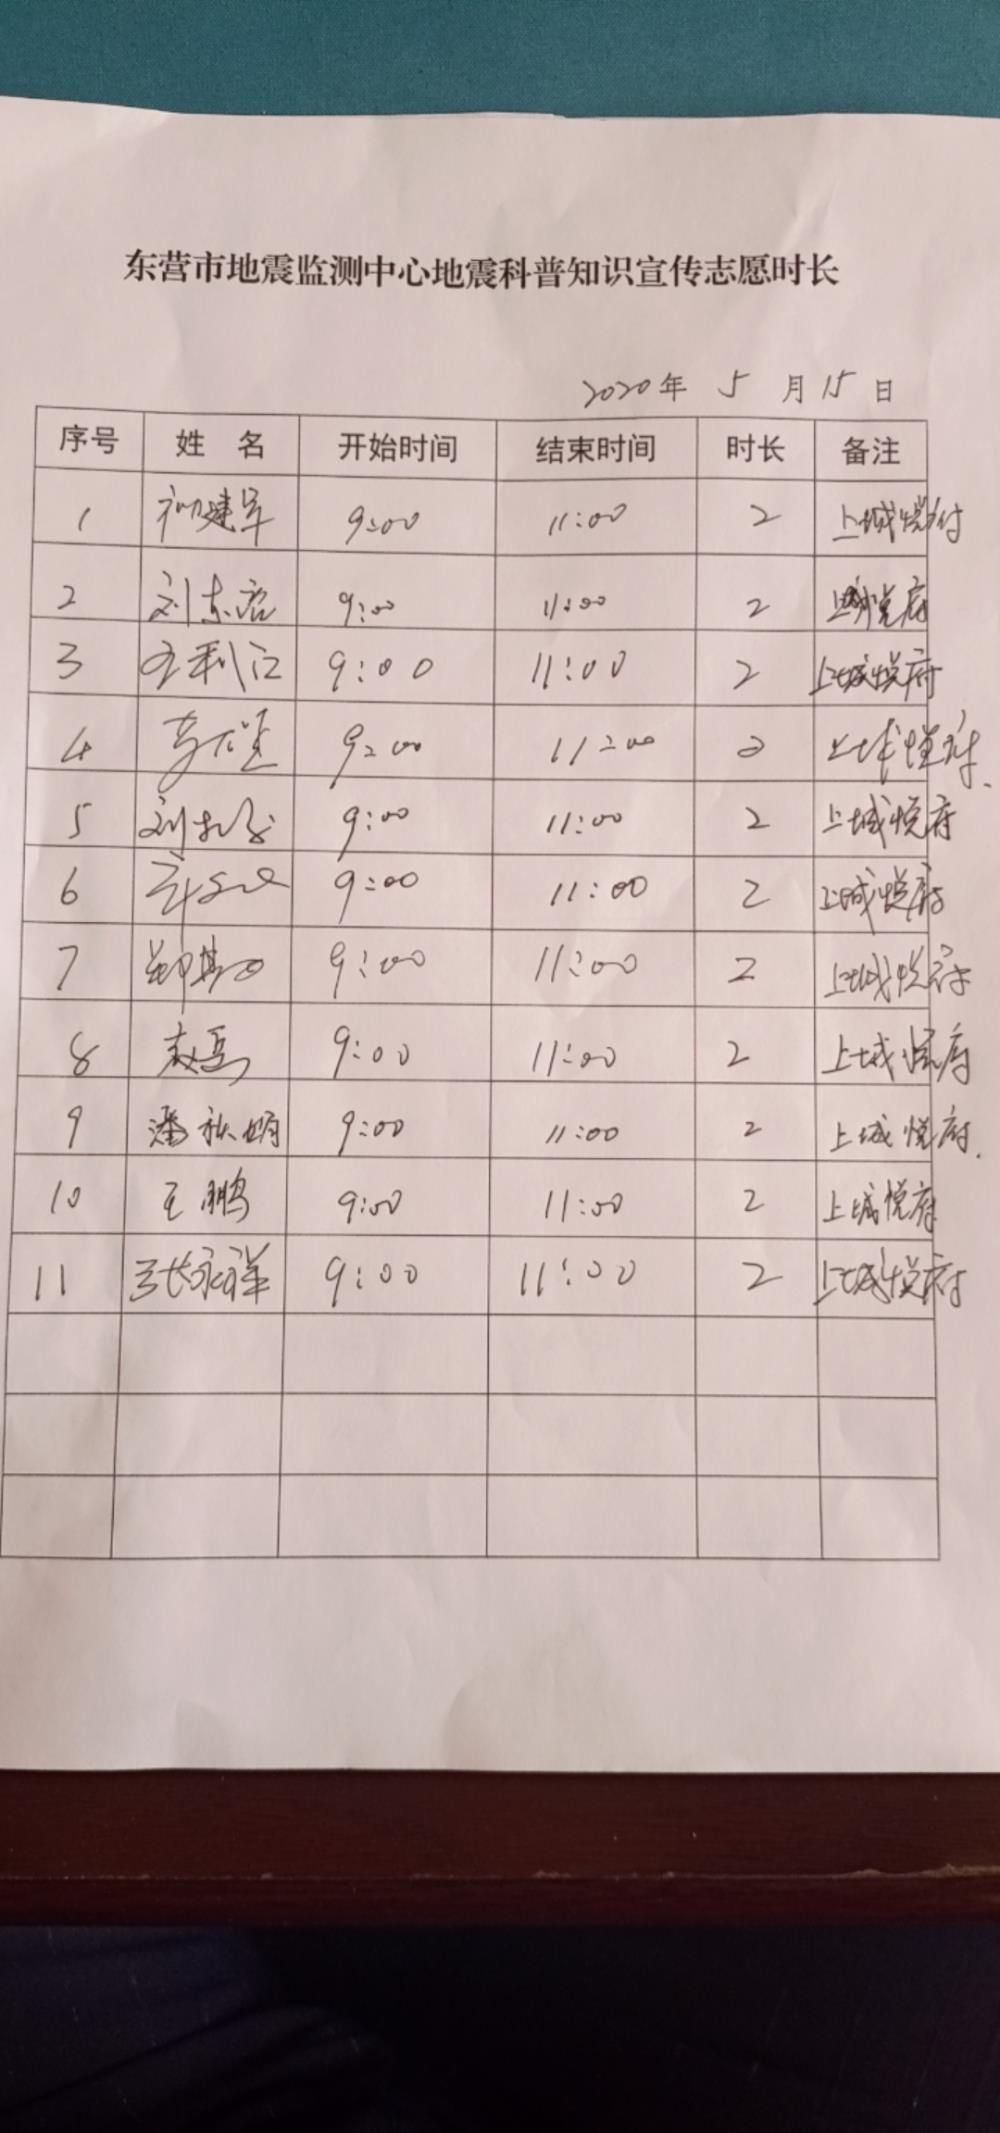 东营市地震监测中心地震科普知识宣传志愿时长
2020年 5 月 15 日
序号 姓 名 开始时间 结束时间 时长 备注
1 初建军 9:00 11:00 2 上城悦府
2 刘东启 9:00 11:00 2 上城悦府
3 王利江 9:00 11:00 2 上城悦府
4 9:00 11:00 2 上城悦府
5 9:00 11:00 2 上城悦府
6 9:00 11:00 2 上城悦府
7 9:00 11:00 2 上城悦府
8 9:00 11:00 2 上城悦府
9 潘秋娟 9:00 11:00 2 上城悦府
10 王鹏 9:00 11:00 2 上城悦府
11 张永祥 9:00 11:00 2 上城悦府